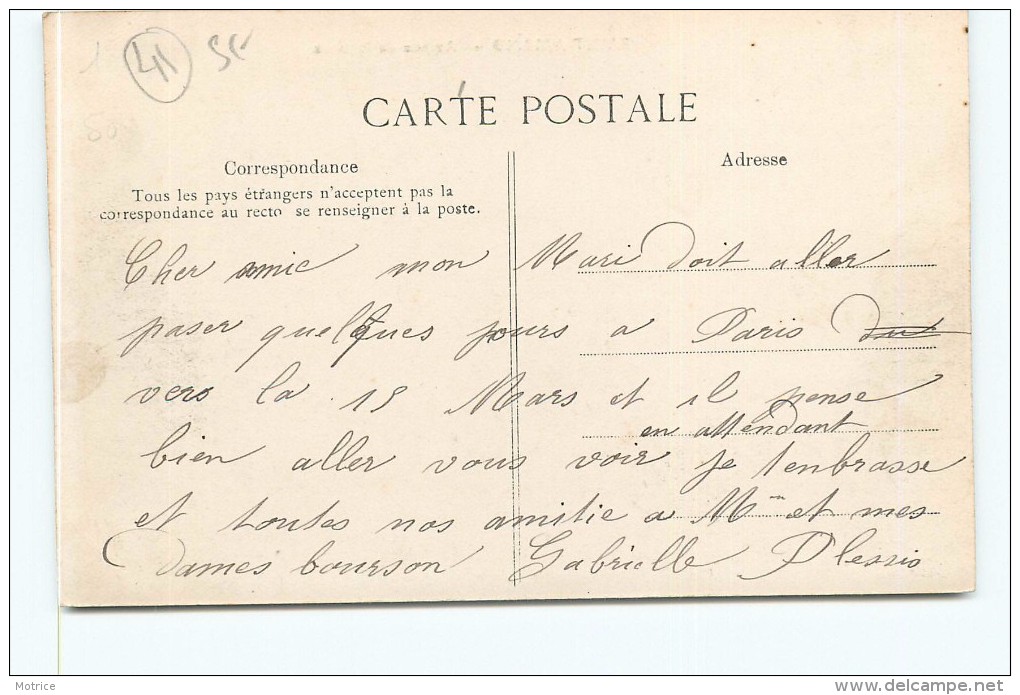 41 SC
CARTE POSTALE
Correspondance
Adresse
Tous les pays étrangers n'acceptent pas la
correspondance au recto se renseigner à la poste.
Cher amie mon Mari doit aller
paser quelques jours a Paris
vers la 15 Mars et il pense
en attendant
bien aller vous voir je tenbrasse
et toutes nos amitie a Mm et mes
Dames bourson Gabrielle Plessis
Motrice
www.delcampe.net